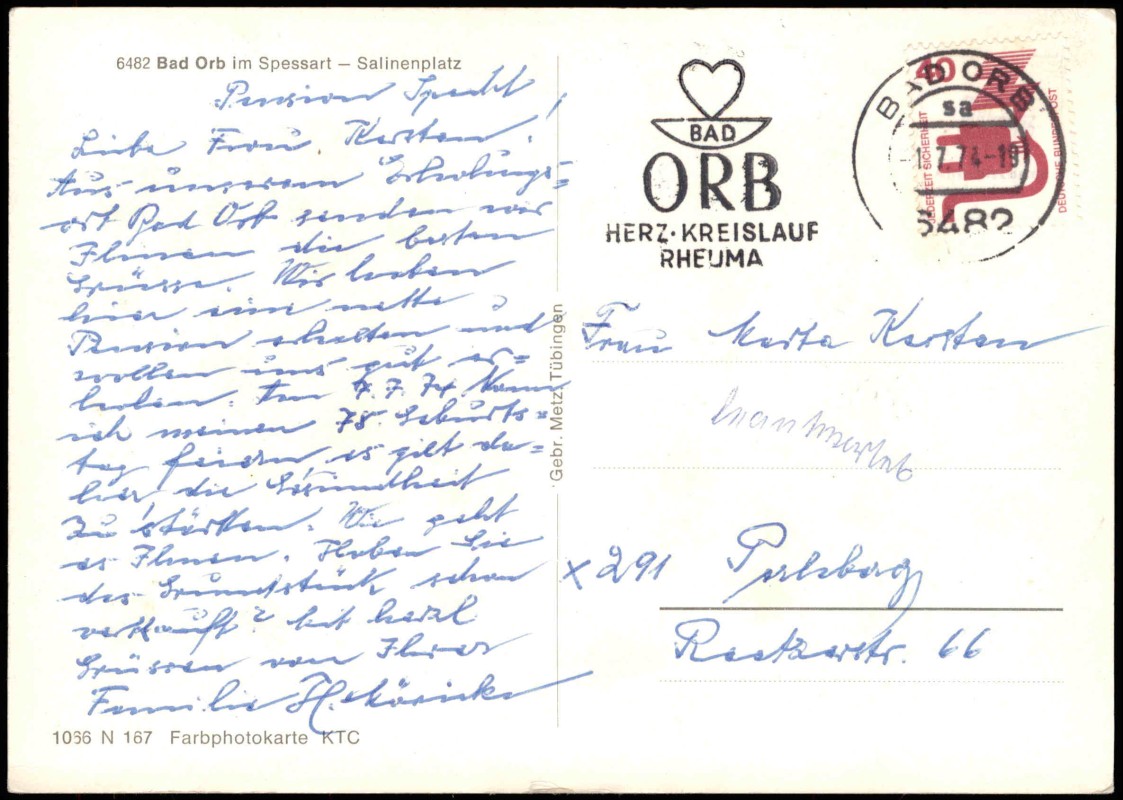 6482 Bad Orb im Spessart – Salinenplatz
Pension Specht
Liebe Frau Kersten!
Aus unserem Erholungs=
ort Bad Orb senden wir
Ihnen die besten
Grüsse. Wir haben
hier eine nette
Pension erhalten und
wollen uns gut er=
holen. Am 7.7.74 kann
ich meinen 78. Geburts=
tag feiern es gilt da=
her die Gesundheit
zu stärken. Wie geht
es Ihnen. Haben Sie
das Grundstück schon
verkauft? Mit herzl
Grüssen von Ihrer
Familie H.
1066 N 167 Farbphotokarte KTC
Gebr. Metz, Tübingen
BAD
ORB
HERZ·KREISLAUF
RHEUMA
BAD ORB
sa
-1.7.74-18
6482
40
JEDERZEIT SICHERHEIT
DEUTSCHE BUNDESPOST
Frau Marta Kersten
beantwortet
x 291
66